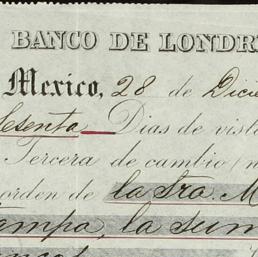 BANCO DE LONDRE
Mexico, 28 de Dicie
Sesenta Dias de vista
Tercera de cambio (n
orden de la Sra. M
la sum